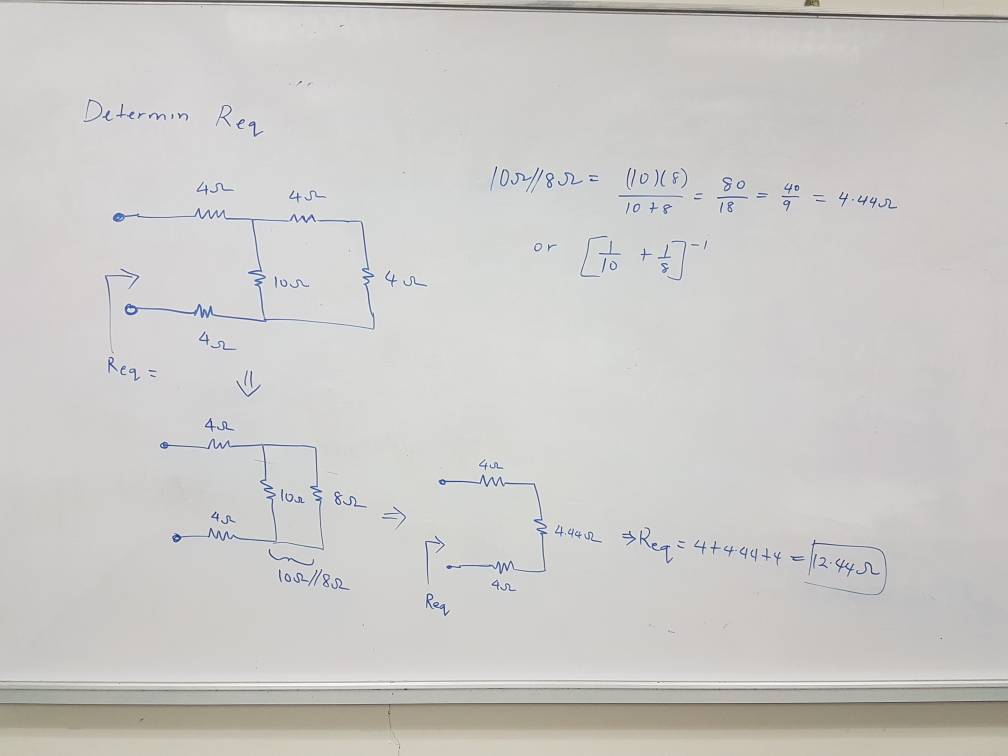 Determin Req
4Ω
4Ω
10Ω
4Ω
4Ω
Req =
10Ω//8Ω = (10)(8) / 10+8 = 80/18 = 40/9 = 4.44Ω
or [1/10 + 1/8]⁻¹
⇓
4Ω
10Ω
8Ω
4Ω
10Ω//8Ω
⇒
4Ω
4.44Ω
4Ω
Req
⇒ Req = 4+4.44+4 = 12.44Ω